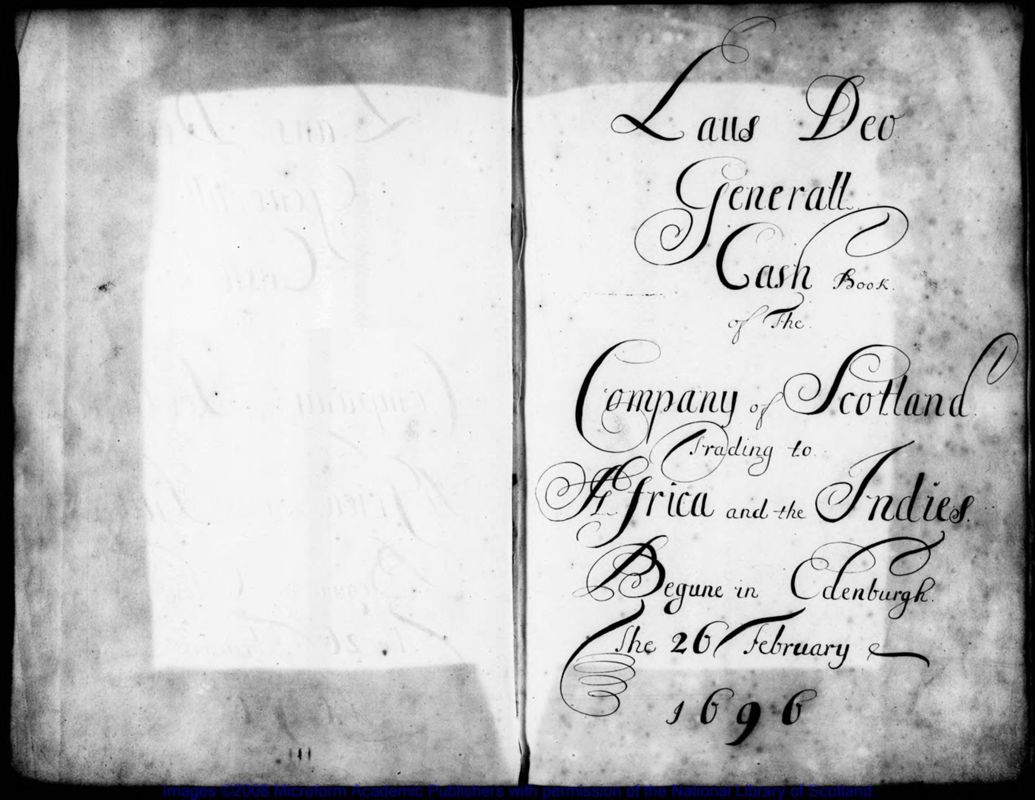 Laus Deo
Generall
Cash Book.
of The
Company of Scotland
Trading to
Affrica and the Indies.
Begune in Edenburgh.
The 26 February
1696
Images ©2008 Microform Academic Publishers with permission of the National Library of Scotland